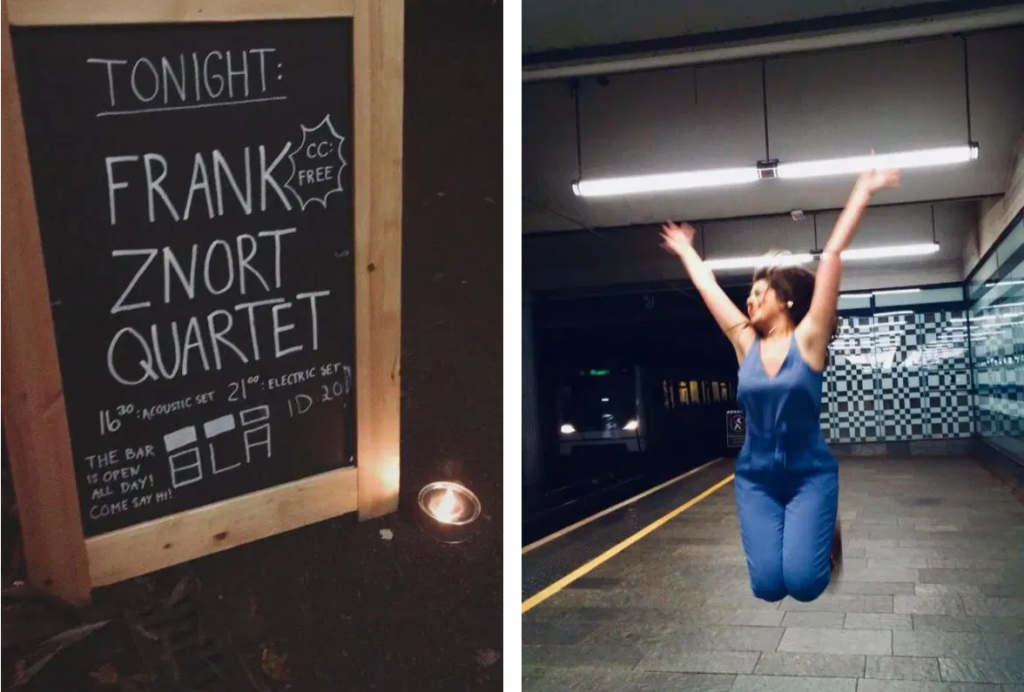 TONIGHT:
CC:
FREE
FRANK
ZNORT
QUARTET
16³⁰: ACOUSTIC SET 21⁰⁰: ELECTRIC SET
ID 20
THE BAR
IS OPEN
ALL DAY!
COME SAY HI!
BLA